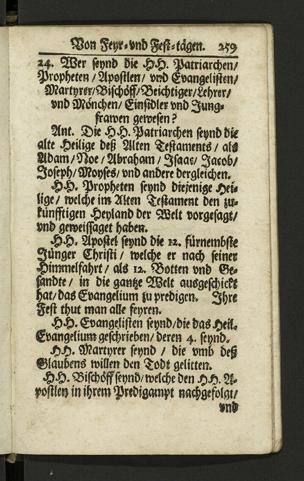 Von Feyr-vnd Fest-tägen. 259
24. Wer seynd die H.H. Patriarchen/
Propheten/Apostlen/ vnd Evangelisten/
Martyrer/Bischöff/Beichtiger/Lehrer/
vnd Mönchen/Einsidler vnd Jung-
frawen gewesen?
Ant. Die H.H. Patriarchen seynd die
alte Heilige deß Alten Testaments/ als
Adam/Noe/Abraham/Isaac/Jacob/
Joseph/Moyses/vnd andere dergleichen.
H.H. Propheten seynd diejenige Hei-
lige/ welche im Alten Testament den zu-
künfftigen Heyland der Welt vorgesagt/
vnd geweissaget haben.
H.H. Apostel seynd die 12. fürnembste
Jünger Christi/ welche er nach seiner
Himmelfahrt/ als 12. Botten vnd Ge-
sandte/ in die gantze Welt ausgeschickt
hat/das Evangelium zu predigen. Ihre
Fest thut man alle feyren.
H.H. Evangelisten seynd/die das Heil.
Evangelium geschrieben/deren 4. seynd.
H.H. Martyrer seynd / die vmb deß
Glaubens willen den Todt gelitten.
H.H. Bischöff seynd/welche den H.H. A-
postlen in ihrem Predigampt nachgefolgt/
vnd